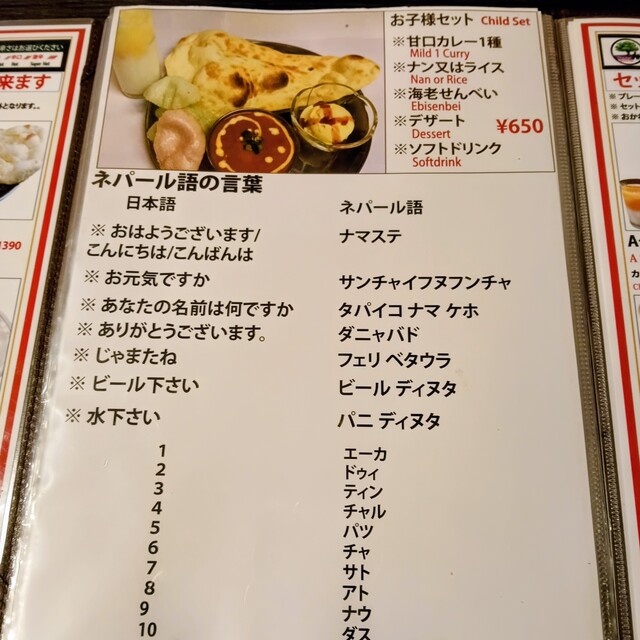 お子様セット Child Set
※甘口カレー1種
Mild 1 Curry
※ナン又はライス
Nan or Rice
※海老せんべい
Ebisenbei
※デザート
Dessert
※ソフトドリンク
Softdrink
¥650
ネパール語の言葉
日本語 ネパール語
※ おはようございます/
こんにちは/こんばんは ナマステ
※ お元気ですか サンチャイフヌフンチャ
※ あなたの名前は何ですか タパイコ ナマ ケホ
※ ありがとうございます。 ダニャバド
※ じゃまたね フェリ ベタウラ
※ ビール下さい ビール ディヌタ
※ 水下さい パニ ディヌタ
1 エーカ
2 ドゥィ
3 ティン
4 チャル
5 パツ
6 チャ
7 サト
8 アト
9 ナウ
10 ダス
来ます
1390
セッ
※ プレー
※ セット
※ おか
A
カ